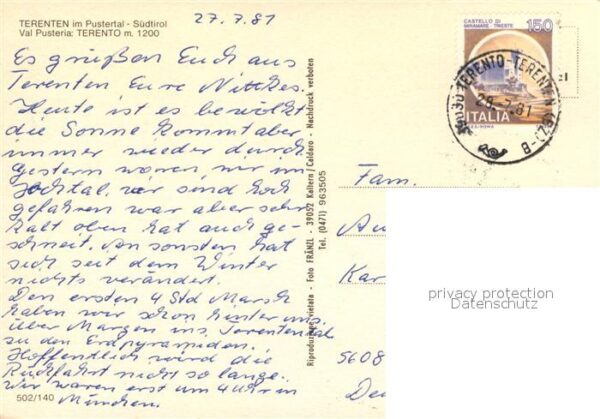 TERENTEN im Pustertal - Südtirol
Val Pusteria: TERENTO m. 1200
27.7.81
Es grüßen Euch aus
Terenten Eure Nittkes.
Heute ist es bewölkt
die Sonne kommt aber
immer wieder durch
gestern waren wir im
hochtal, wir sind hoch
gefahren war aber sehr
kalt oben hat auch ge-
schneit. An sonsten hat
sich seit dem Winter
nichts verändert.
Den ersten 4 Std Marsch
haben wir schon hinter uns.
über Margen ins Terental
zu den Erdpyramiden.
Hoffentlich wird die
Rückfahrt nicht so lange.
Wir waren erst um 4 Uhr in
München.
502/140
Riproduzione vietata - Foto FRÄNZL - 39052 Kaltern/Caldaro - Nachdruck verboten
Tel. (0471) 963505
CASTELLO DI
MIRAMARE TRIESTE
150
ITALIA
39030 TERENTO-TERENTEN (BZ)-B-
28.7.81
zl
Fam.
Kar
5608
privacy protection
Datenschutz